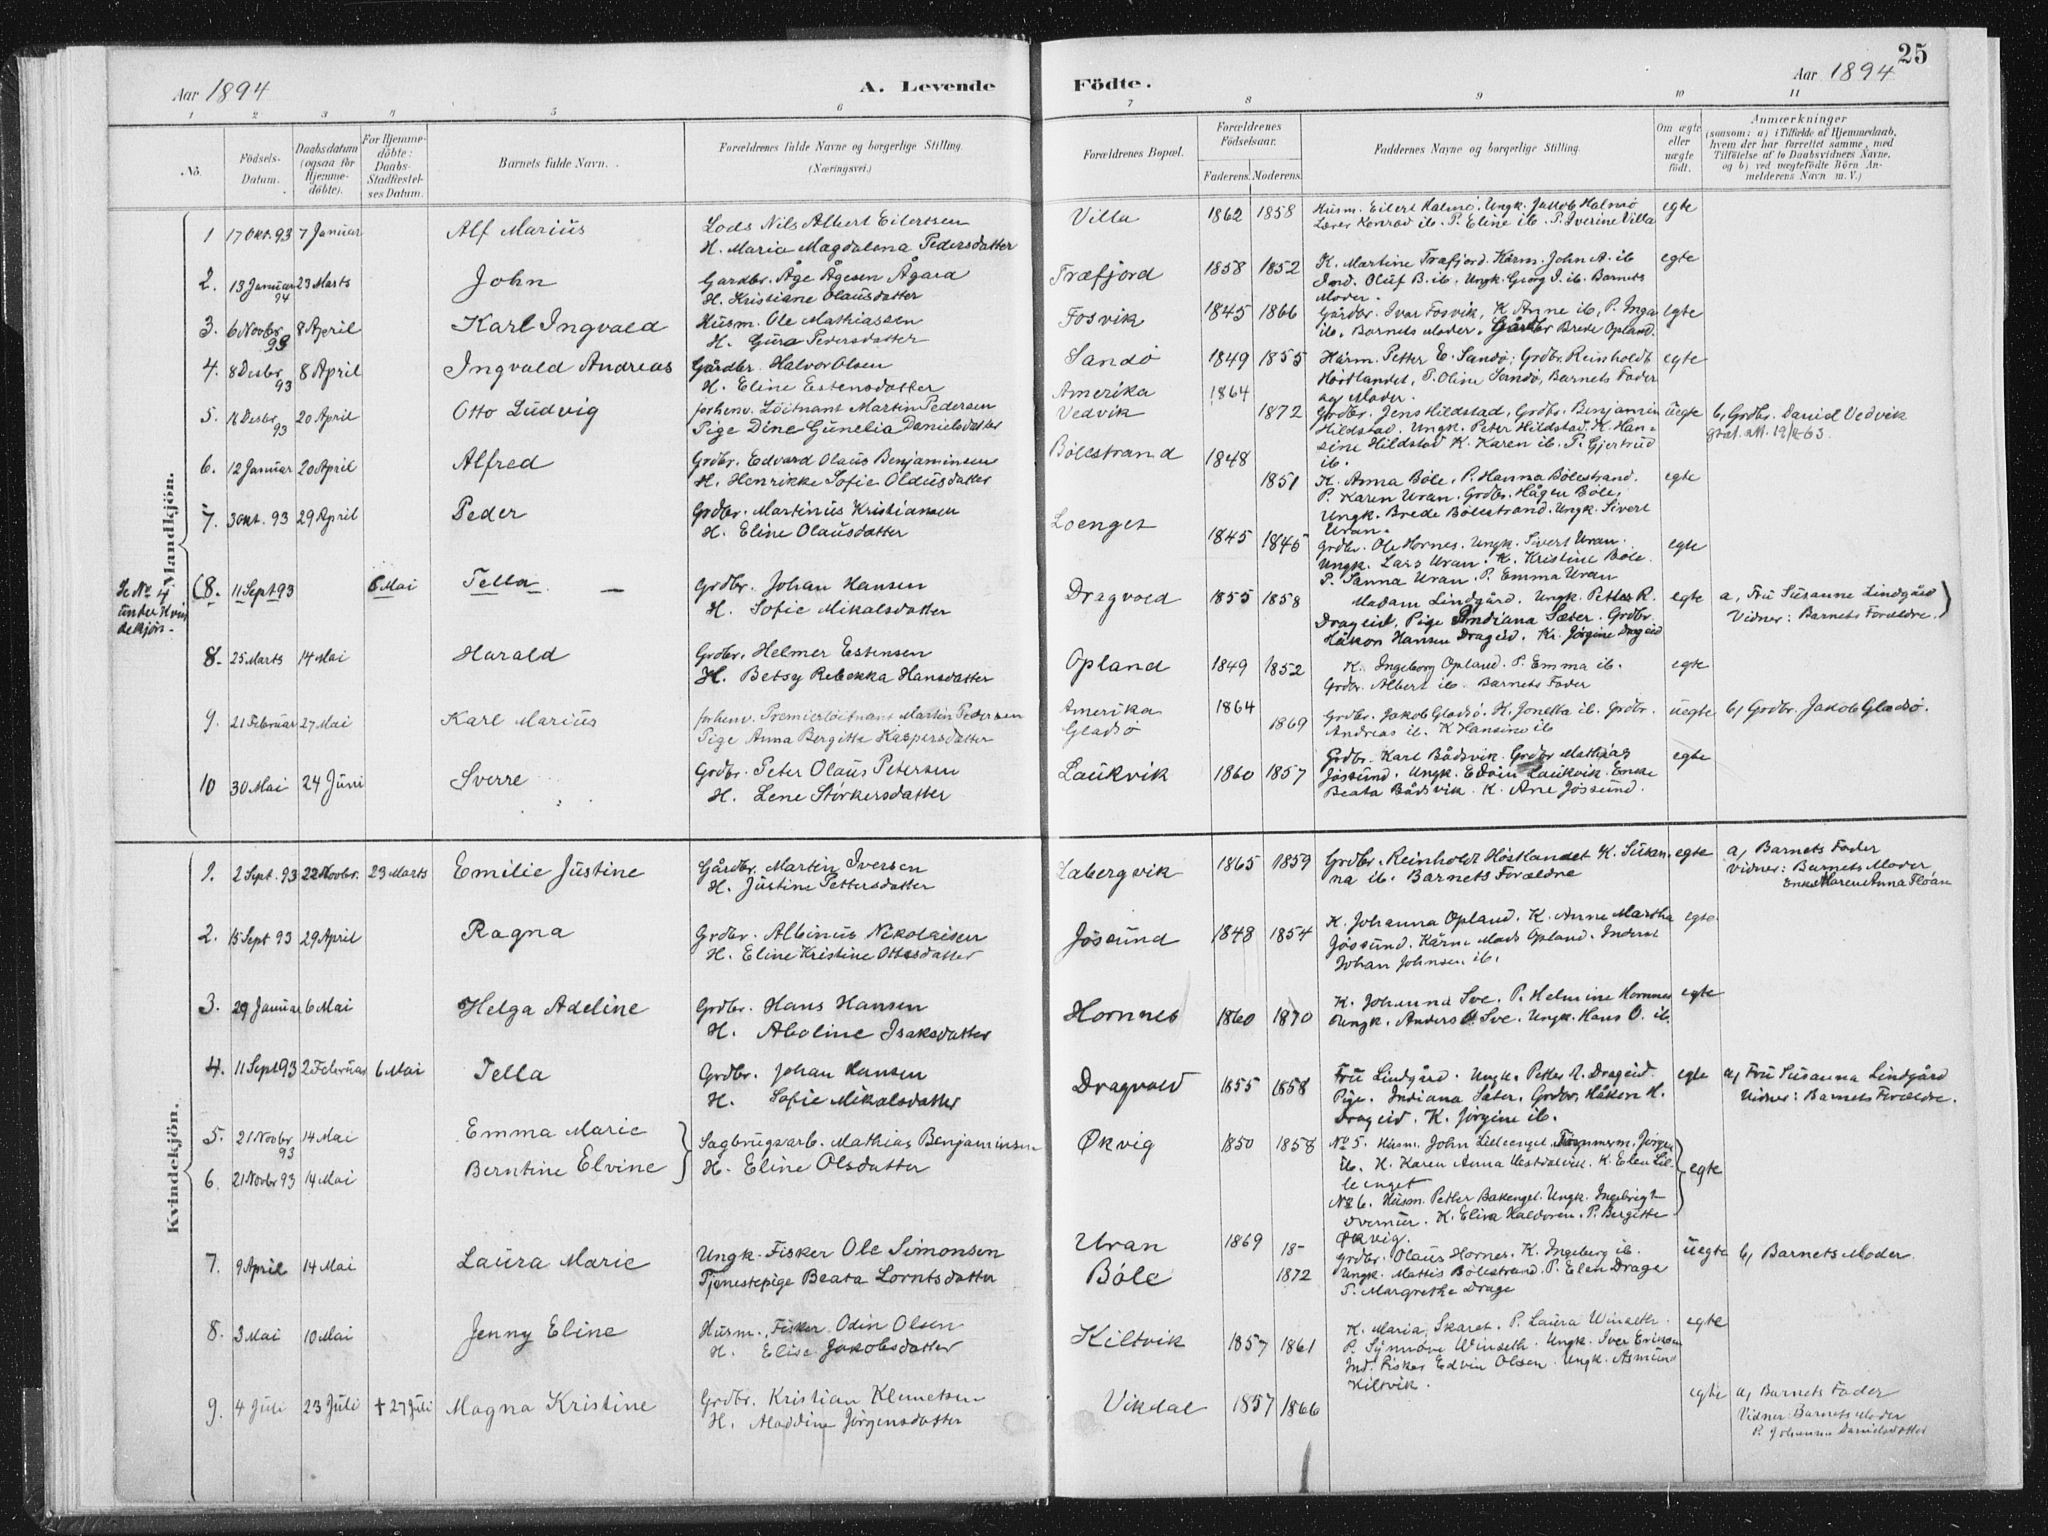 25
Aar 1894
A. Levende
Födte.
Aar 1894
1 2 3 4 5 6 7 8 9 10 11
No.
Födsels-
Datum.
Daabsdatum
(ogsaa for
Hjemme-
döbte).
For Hjemme-
döbte:
Daabs-
Stadfæstel-
ses Datum.
Barnets fulde Navn.
Forældrenes fulde Navne og borgerlige Stilling.
(Næringsvei.)
Forældrenes Bopæl.
Forældrenes
Födselsaar.
Faderens. Moderens.
Faddernes Navne og borgerlige Stilling.
Om ægte
eller
uægte
födt.
Anmærkninger
(saasom: a) i Tilfælde af Hjemmedaab,
hvem der har forrettet samme, med
Tilföielse af to Daabsvidners Navne,
og b) ved uægtefödte Börn An-
melderens Navn m. V.)
Mandkjön.
1 17 Okt. 93 7 Januar Alf Marius
Lods Nils Albert Eilertsen
H. Maria Magdalena Pedersdatter
Villa 1862 1858
Husm. Eilert Halmö. Ungk. Jakob Halmö
Lærer Konrad ib. P. Eline ib. P. Iverine Villa
egte
2. 13 Januar 94 23 Marts John
Gardbr. Åge Ågesen Ågard
H. Kristiane Olausdatter
Træfjord 1858 1852
K. Martine Træfjord. Kårm. John A. ib
Ind. Oluf B. ib. Ungk. Georg I. ib. Barnets
Moder.
egte
3. 6 Novbr. 93 8 April Karl Ingvald
Husm. Ole Mathiassen
H. Gura Pedersdatter
Fosvik 1845 1866
Gårdbr. Ivar Fosvik, K. Anne ib, P. Inga
ib. Barnets Moder. Gårdbr Brede Opland.
egte
4. 8 Desbr. 93 8 April Ingvald Andreas
Gårdbr. Halvor Olsen
H. Eline Estensdatter
Sandö 1849 1855
Kårm. Petter E. Sandö; Grdbr. Reinholdt
Höstlandet, P. Oline Sandö, Barnets Fader
og Moder.
egte
5. 16 Desbr. 93 20 April Otto Ludvig
forhenv. Löitnant Martin Pedersen
Pige Dine Gunelia Danielsdatter
Amerika 1864
Vedvik 1872
Grdbr. Jens Hildstad, Grdbr. Benjamin
Hildstad. Ungk. Peter Hildstad. K. Han-
sine Hildstad K. Karen ib. P. Gjertrud
ib.
uegte b, Grdbr. Daniel Vedvik
6. 12 Januar 20 April Alfred
Grdbr. Edvard Olaus Benjaminsen
H. Henrikke Sofie Oldusdatter
Bölestrand 1848 1851
K. Anna Böle, P. Hanna Bölestrand.
P. Karen Uran. Grdbr. Hågen Böle,
Ungk. Brede Bölestrand. Ungk. Sivert
Uran.
egte
7. 3 Okt. 93 29 April Peder
Grdbr. Martinus Kristiansen
H. Eline Olausdatter
Loenget 1845 1845
Grdbr. Ole Hornes. Ungk. Sivert Uran.
Ungk. Lars Uran. K. Kristine Böle.
P. Sanna Uran. P. Emma Uran
egte
Se No 4
under Kvin
dekjön.
(8. 11 Sept 93 6 Mai Tella
Grdbr. Johan Hansen
H. Sofie Mikalsdatter
Dragvold 1855 1858
Madam Lindgård. Ungk. Petter R.
Drageid, Pige Indiana Sæter. Grdbr.
Håkon Hansen Drageid. K. Jörgine Drageid
egte a, Fru Susanne Lindgård
Vidner: Barnets Forældre.)
8. 25 Marts 14 Mai Harald
Grdbr. Helmer Estensen
H. Betsy Rebekka Hansdatter
Opland 1849 1852
K. Ingeborg Opland. P. Emma ib.
Grdbr. Albert ib. Barnets Fader
egte
9. 21 Februar 27 Mai Karl Marius
forhenv. Premierlöitnant Martin Pedersen
Pige Anna Bergitte Kaspersdatter
Amerika 1864
Gladsö 1869
Grdbr. Jakob Gladsö. K. Jonetta ib. Grdbr.
Andreas ib. K Hansine ib
uegte b, Grdbr. Jakob Gladsö.
10 30 Mai 24 Juni Sverre
Grdbr. Peter Olaus Petersen
H. Lene Störkersdatter
Laukvik 1860 1857
Grdbr. Karl Bådsvik. Grdbr Mathias
Jössund. Ungk. Edvin Laukvik. Enke
Beata Bådsvik. K. Ane Jössund.
egte
Kvindekjön.
1. 2 Sept. 93 22 Novbr. 23 Marts Emilie Justine
Gårdbr. Martin Iversen
H. Justine Pettersdatter
Zabergvik 1865 1859
Grdbr. Reinholdt Höstlandet K. Susan-
na ib. Barnets Forældre
egte a, Barnets Fader
Vidner: Barnets Moder
Enke Maren Anna Flöan
2. 15 Sept 93 29 April Ragna
Grdbr. Albinus Nikolaisen
H. Eline Kristine Ottesdatter
Jössund 1848 1854
K. Johanna Opland. K. Anne Martha
Jössund. Kårm Mads Opland. Inderst
Johan Johnsen ib.
egte
3. 29 Januar 6 Mai Helga Adeline
Grdbr. Hans Hansen
H. Aboline Isaksdatter
Hornnes 1860 1870
K. Johanna Sve. P. Helmine Hornnes
Ungk. Anders O. Sve. Ungk. Hans O. ib.
egte
4. 11 Sept 93 2 Februar 6 Mai Tella
Grdbr. Johan Hansen
H. Sofie Mikalsdatter
Dragvold 1855 1858
Fru Lindgård. Ungk. Petter R. Drageid.
Pige. Indiana Sæter. Grdbr. Håkon H.
Drageid. K. Jörgine ib.
egte a, Fru Susanna Lindgård
Vidner: Barnets Forældre.
5. 21 Novbr 93 14 Mai Emma Marie
6. 21 Novbr 93 14 Mai Berntine Elvine
Sagbrugsarb. Mathias Benjaminsen
H. Eline Olsdatter
Økvig 1850 1858
No 5. Husm. John Lilleenget. Tömmerm. Jörgen
ib. K. Karen Anna Vestdalvik. K. Elen Lil-
leenget
No 6. Husm. Petter Bakenget. Ungk. Ingebrigt
K. Elisa Haldoren. P. Bergitte
Økvig.
egte
7. 9 April 14 Mai Laura Marie
Ungk. Fisker Ole Simonsen
Tjenestepige Beata Lorntsdatter
Uran 1869 18-
Böle 1872
Grdbr. Olaus Hornes. K. Ingeberg ib.
Ungk. Mattis Bölestrand. P. Elen Drage
P. Margrethe Drage
uegte b, Barnets Moder.
8. 3 Mai 10 Mai Jenny Eline
Husm. Fisker Odin Olsen
H. Elise Jakobsdatter
Kiltvik 1857 1861
K. Maria Skaret. P. Laura Winseth.
P. Synnöve Winseth. Ungk. Iver Eriksen
Ind. Fisker Edvin Olsen. Ungk. Asmund
Kiltvik.
egte
9. 4 Juli 23 Juli † 27 Juli Magna Kristine
Grdbr. Kristian Klemetsen
H. Maddine Jörgensdatter
Vikdal 1857 1866
egte a, Barnets Fader
Vidner: Barnets Moder
P. Johanna Danielsdatter